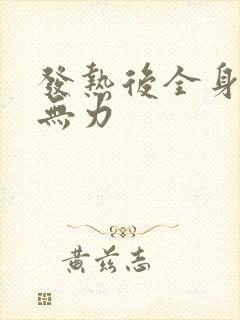 發熱後全身
無力
黃茲志